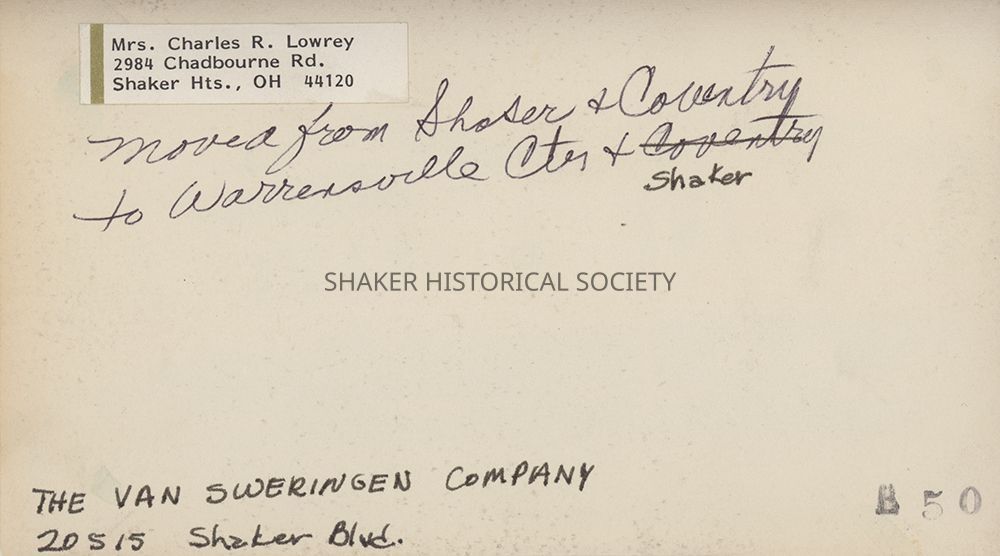 Mrs. Charles R. Lowrey
2984 Chadbourne Rd.
Shaker Hts., OH 44120
moved from Shaker & Coventry
to Warrensville Ctr & Coventry
Shaker
SHAKER HISTORICAL SOCIETY
THE VAN SWERINGEN COMPANY
20515 Shaker Blvd.
B 50